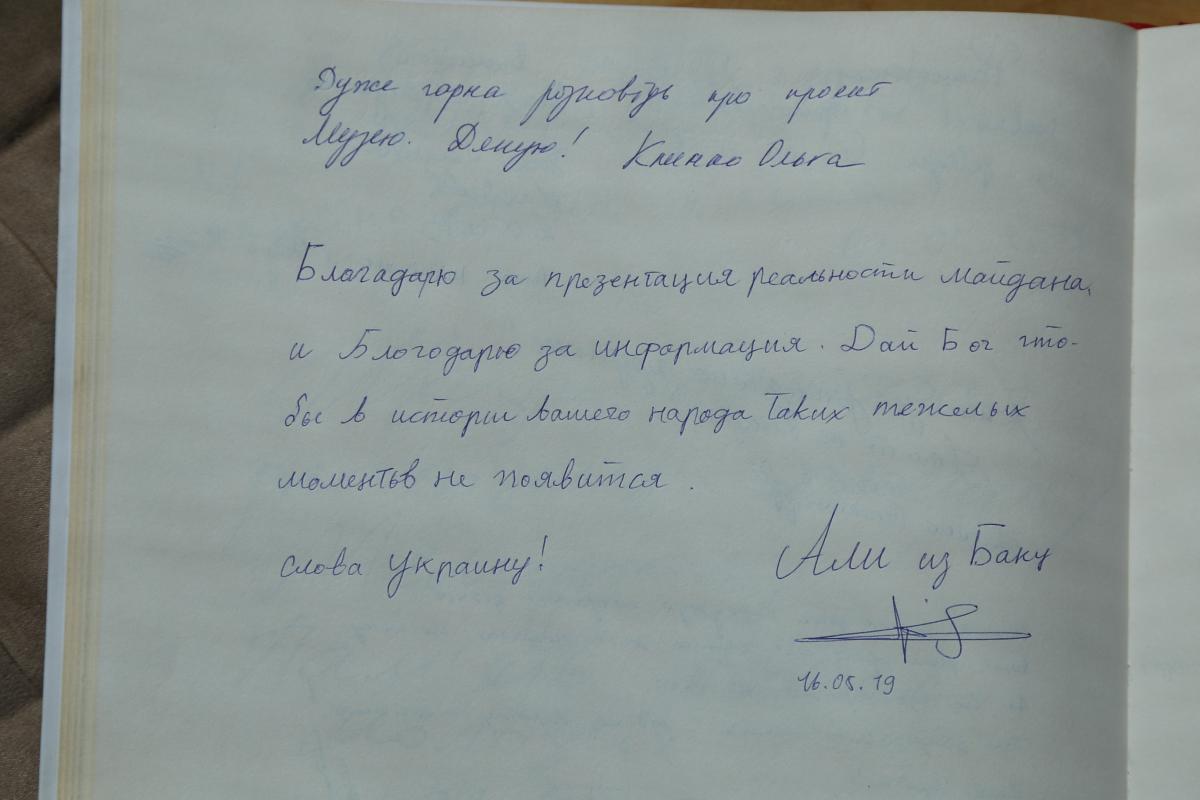 Дуже гарна розповідь про проект
Музею. Дякую! Ольга
Благадарю за презентация реальности майдана,
и Благодарю за информация. Дай Бог что-
бы в истории вашего народа таких тежелых
моментъв не появится.
слова Украину!
Али из Баку
16.05.19